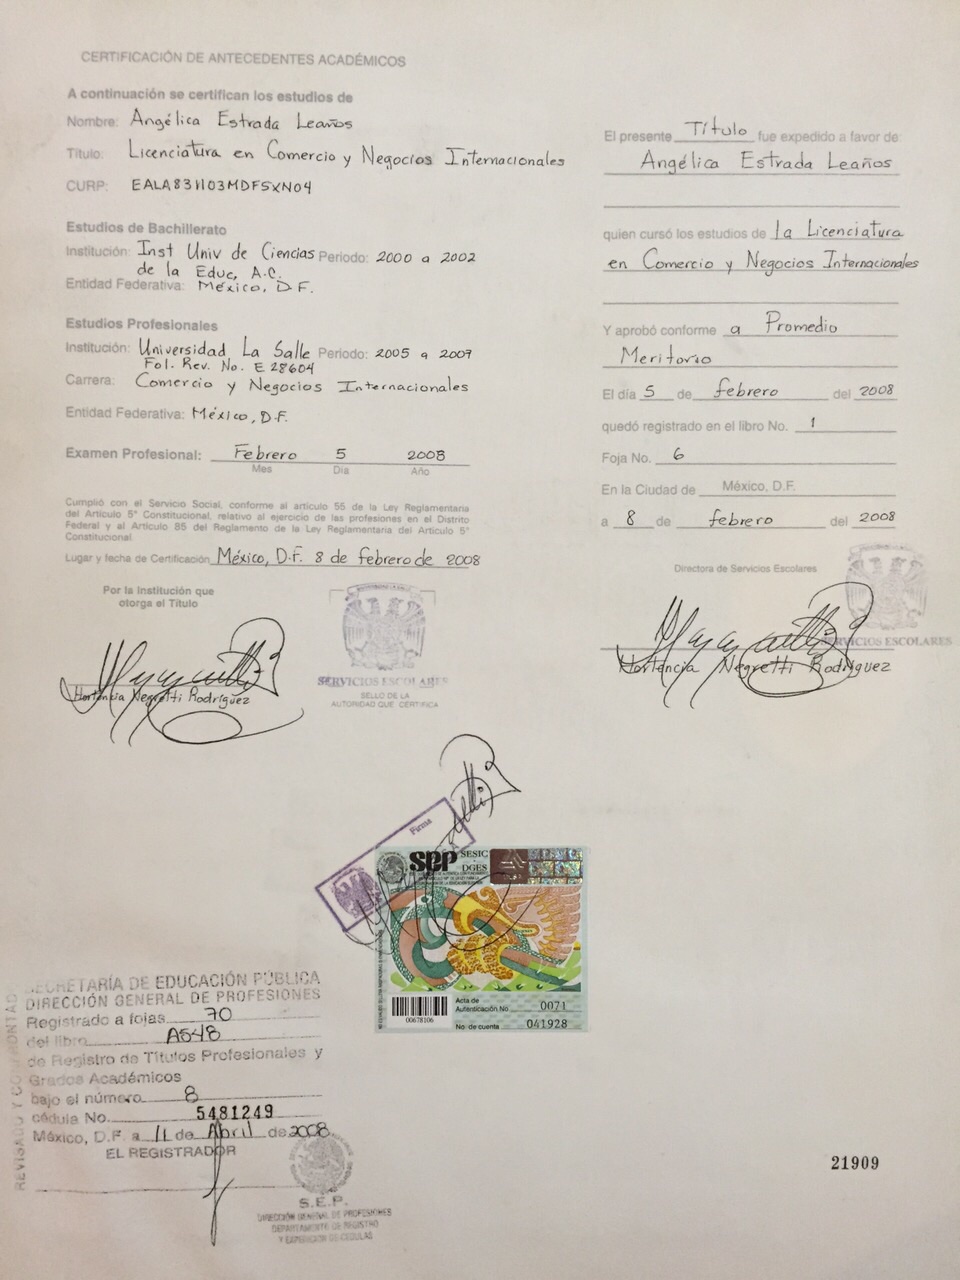 CERTIFICACIÓN DE ANTECEDENTES ACADÉMICOS
A continuación se certifican los estudios de
Nombre: Angélica Estrada Leaños
Título: Licenciatura en Comercio y Negocios Internacionales
CURP: EALA831103MDFSXN04
Estudios de Bachillerato
Institución: Inst Univ de Ciencias Periodo: 2000 a 2002
de la Educ, A.C.
Entidad Federativa: México, D.F.
Estudios Profesionales
Institución: Universidad La Salle Periodo: 2005 a 2007
Fol. Rev. No. E 28604
Carrera: Comercio y Negocios Internacionales
Entidad Federativa: México, D.F.
Examen Profesional: Febrero 5 2008
Mes Día Año
Cumplió con el Servicio Social, conforme al artículo 55 de la Ley Reglamentaria
del Artículo 5° Constitucional, relativo al ejercicio de las profesiones en el Distrito
Federal y al Artículo 85 del Reglamento de la Ley Reglamentaria del Artículo 5°
Constitucional.
Lugar y fecha de Certificación México, D.F. 8 de febrero de 2008
Por la Institución que
otorga el Título
Hortencia Negretti Rodríguez
SERVICIOS ESCOLARES
SELLO DE LA
AUTORIDAD QUE CERTIFICA
El presente Título fue expedido a favor de:
Angélica Estrada Leaños
quien cursó los estudios de la Licenciatura
en Comercio y Negocios Internacionales
Y aprobó conforme a Promedio
Meritorio
El día 5 de febrero del 2008
quedó registrado en el libro No. 1
Foja No. 6
En la Ciudad de México, D.F.
a 8 de febrero del 2008
Directora de Servicios Escolares
SERVICIOS ESCOLARES
Hortencia Negretti Rodríguez
Firma
sep SESIC
DGES
00678106
Acta de
Autenticación No 0071
No. de cuenta 041928
SECRETARÍA DE EDUCACIÓN PÚBLICA
DIRECCIÓN GENERAL DE PROFESIONES
Registrado a fojas 70
del libro A548
de Registro de Títulos Profesionales y
Grados Académicos
bajo el número 8
cédula No. 5481249
México, D.F. a 11 de Abril de 2008
EL REGISTRADOR
S.E.P.
DIRECCIÓN GENERAL DE PROFESIONES
DEPARTAMENTO DE REGISTRO
Y EXPEDICIÓN DE CEDULAS
REVISADO Y CONFRONTADO
21909